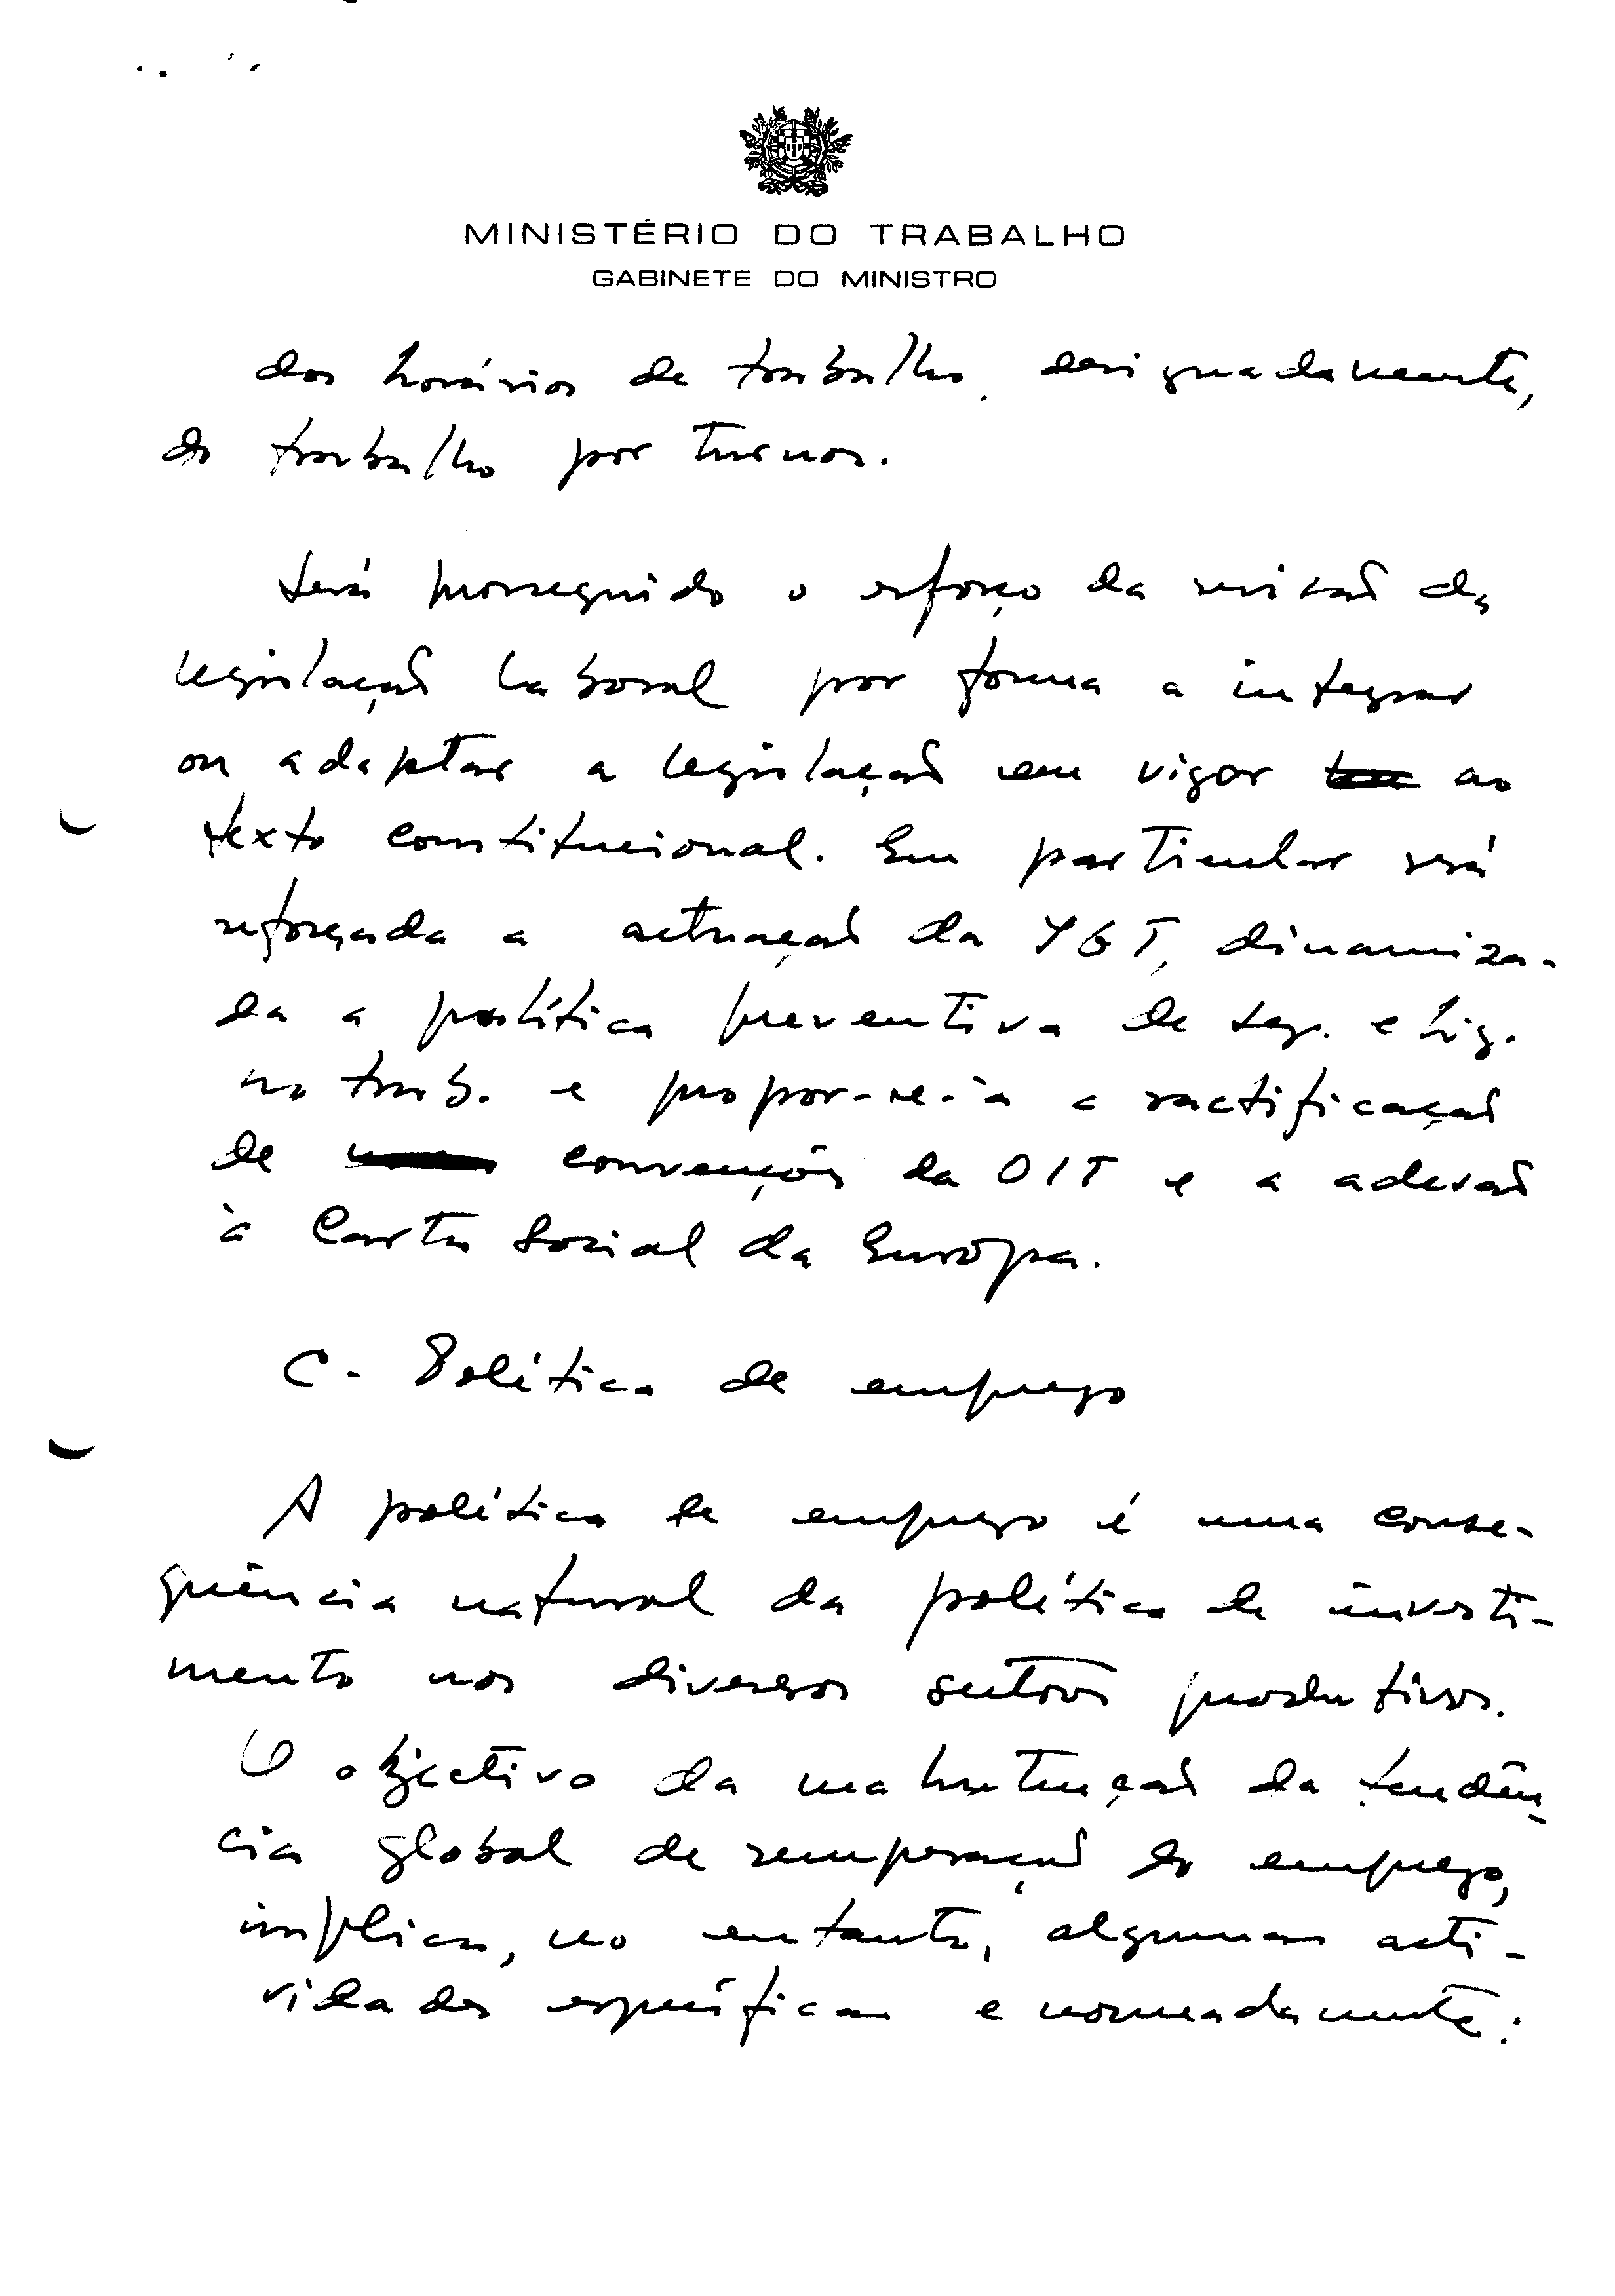 MINISTÉRIO DO TRABALHO
GABINETE DO MINISTRO
dos horários de trabalho, designadamente,
do trabalho por turnos.
Será prosseguido o esforço da revisão da
legislação laboral por forma a integrar
ou adaptar a legislação em vigor ao
texto constitucional. Em particular será
reforçada a actuação da IGT, dinamiza-
da a política preventiva de seg. e hig.
no trab. e propor-se-á a ractificação
de convenções da OIT e a adesão
à Carta Social da Europa.
C - Política de emprego
A política de emprego é uma conse-
quência natural da política de investi-
mento nos diversos sectores produtivos.
O objectivo da manutenção da tendên-
cia global de recuperação do emprego,
implica, no entanto, algumas acti-
vidades específicas e nomeadamente: